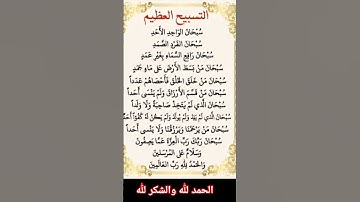 التسبيح العظيم
سُبْحَانَ الوَاحِدِ الأَحَدِ
سُبْحَانَ الفَرْدِ الصَّمَدِ
سُبْحَانَ رَافِعِ السَّمَاءِ بِغَيْرِ عَمَدٍ
سُبْحَانَ مَنْ بَسَطَ الأَرْضَ عَلَى مَاءٍ جَمَدٍ
سُبْحَانَ مَنْ خَلَقَ الخَلْقَ فَأَحْصَاهُمْ عَدَداً
سُبْحَانَ مَنْ قَسَّمَ الأَرْزَاقَ وَلَمْ يَنْسَى أَحَداً
سُبْحَانَ الَّذِي لَمْ يَتَّخِذْ صَاحِبَةً وَلَا وَلَداً
سُبْحَانَ الَّذِي لَمْ يَلِدْ وَلَمْ يُولَدْ وَلَمْ يَكُنْ لَهُ كُفُواً أَحَدٌ
سُبْحَانَ مَنْ يَرْحَمُنَا وَيَرْزُقُنَا وَلَا يَنْسَى أَحَداً
سُبْحَانَ رَبِّكَ رَبِّ الْعِزَّةِ عَمَّا يَصِفُونَ
وَسَلَامٌ عَلَى المُرْسَلِينَ
وَالحَمْدُ لِلَّهِ رَبِّ العَالَمِينَ
الحمد لله والشكر لله